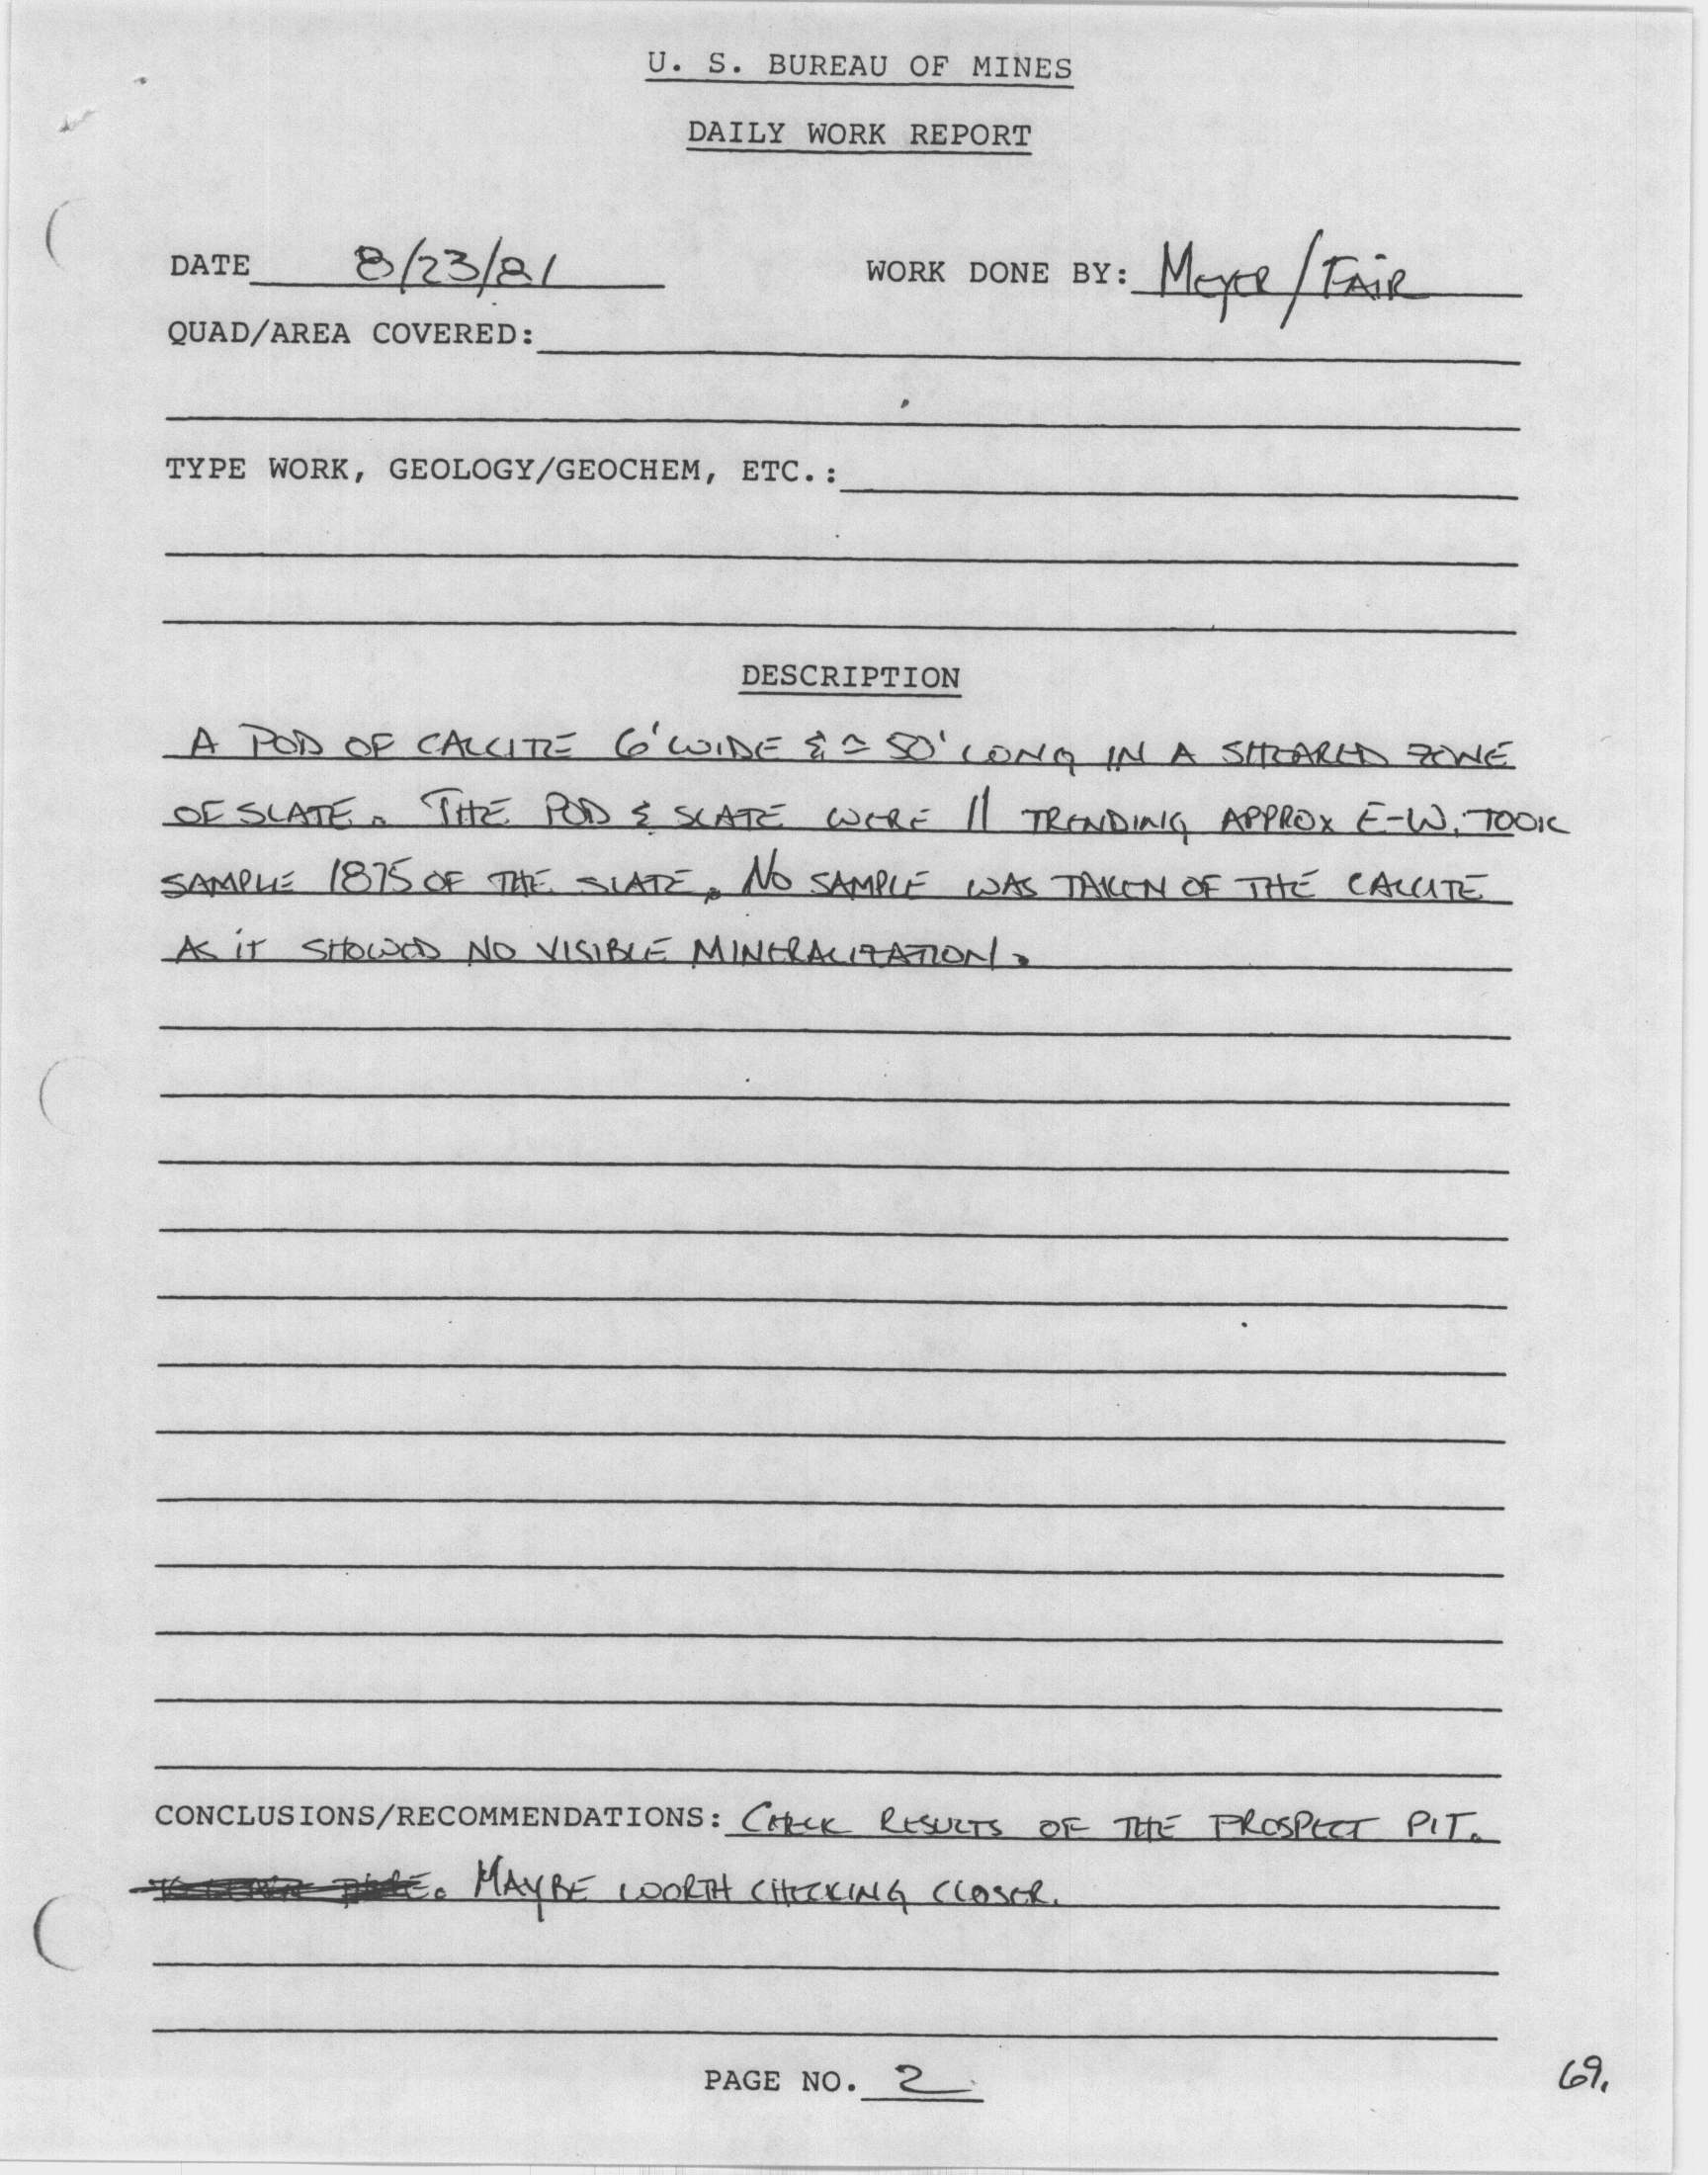 U. S. BUREAU OF MINES
DAILY WORK REPORT
DATE 8/23/81 WORK DONE BY: Meyer/FAIR
QUAD/AREA COVERED:
TYPE WORK, GEOLOGY/GEOCHEM, ETC.:
DESCRIPTION
A POD OF CALCITE 6' WIDE & ≃ 50' LONG IN A SHEARED ZONE
OF SLATE. THE POD & SLATE WERE || TRENDING APPROX E-W. TOOK
SAMPLE 1875 OF THE SLATE. NO SAMPLE WAS TAKEN OF THE CALCITE
AS IT SHOWED NO VISIBLE MINERALIZATION.
CONCLUSIONS/RECOMMENDATIONS: CHECK RESULTS OF THE PROSPECT PIT.
MAYBE WORTH CHECKING CLOSER.
PAGE NO. 2
69.